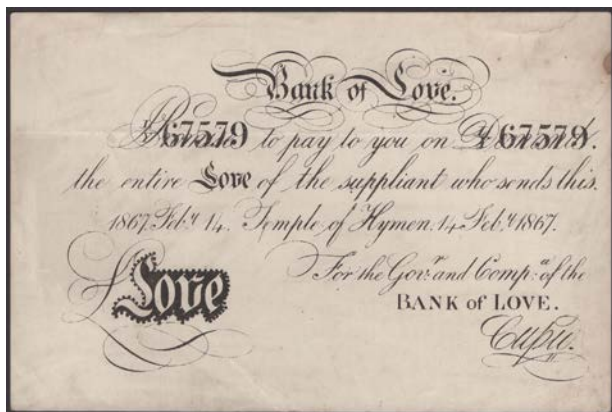 Bank of Love.
I Promise to pay to you on Demand.
№ 67579 № 67579
the entire Love of the suppliant who sends this.
1867 Feby 14. Temple of Hymen. 14 Feby 1867.
For the Govr. and Compa. of the
Love BANK of LOVE.
Cupid.